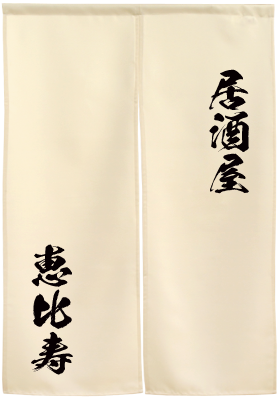 居酒屋
恵比寿